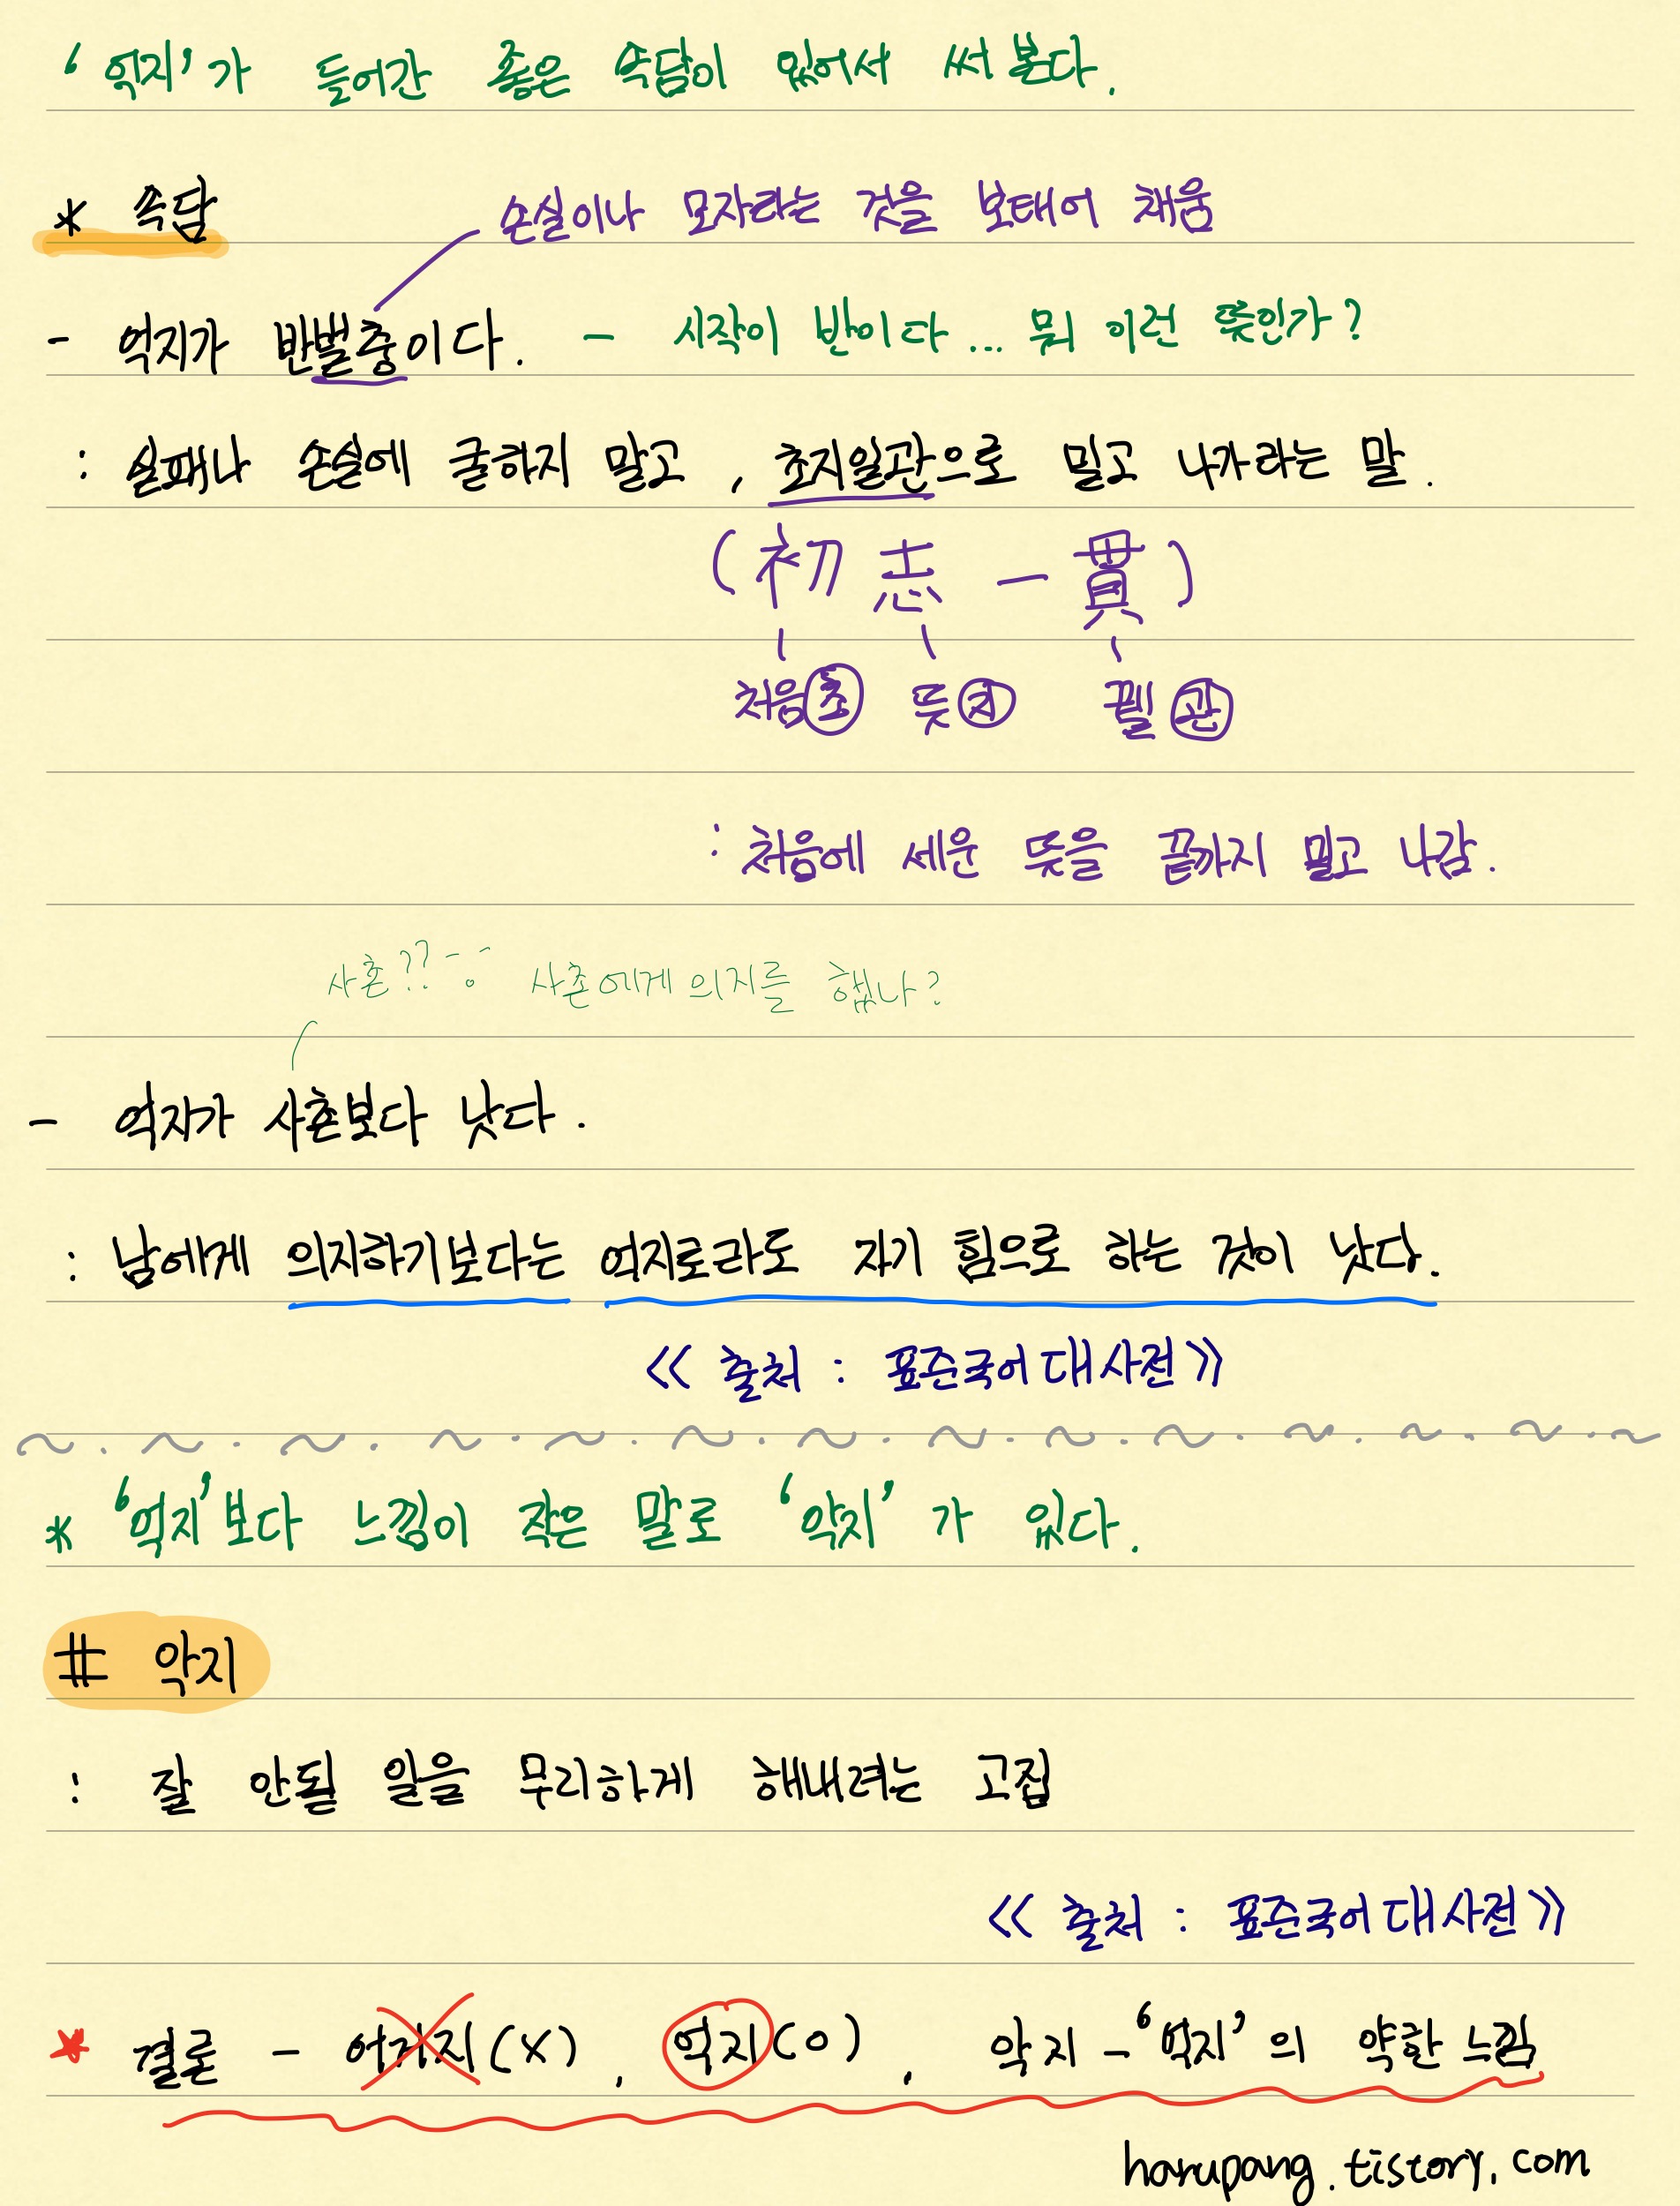 ‘억지’가 들어간 좋은 속담이 있어서 써 본다.
* 속담
손실이나 모자라는 것을 보태어 채움
- 억지가 반벌충이다. - 시작이 반이다... 뭐 이런 뜻인가?
: 실패나 손실에 굴하지 말고, 초지일관으로 밀고 나가라는 말.
(初志一貫)
처음 초 뜻 지 꿸 관
: 처음에 세운 뜻을 끝까지 밀고 나감.
사촌?? -;- 사촌에게 의지를 했나?
- 억지가 사촌보다 낫다.
: 남에게 의지하기보다는 억지로라도 자기 힘으로 하는 것이 낫다.
<< 출처 : 표준국어대사전 >>
~ · ~ · ~ · ~ · ~ · ~ · ~ · ~ · ~ · ~ · ~ · ~ · ~ · ~
* ‘억지’보다 느낌이 작은 말로 ‘악지’가 있다.
# 악지
: 잘 안될 일을 무리하게 해내려는 고집
<< 출처 : 표준국어대사전 >>
* 결론 - 어거지(X), 억지(O), 악지 - ‘억지’의 약한 느낌
harupang.tistory.com